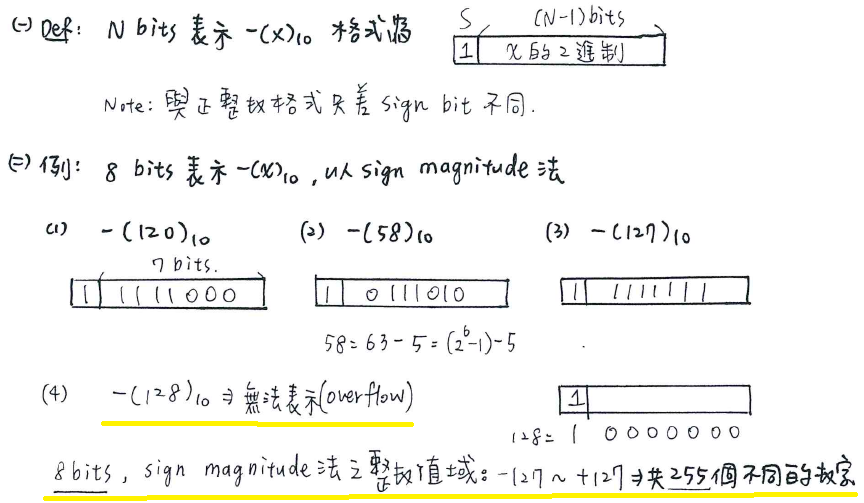 (一) Def: N bits 表示 -(x)₁₀ 格式為
S (N-1)bits
1 x 的 2 進制
Note: 與正整數格式只差 sign bit 不同.
(二) 例: 8 bits 表示 -(x)₁₀, 以 sign magnitude 法
(1) -(120)₁₀ (2) -(58)₁₀ (3) -(127)₁₀
7 bits.
1 1111000 1 0111010 1 1111111
58 = 63 - 5 = (2⁶-1)-5
(4) -(128)₁₀ ⇒ 無法表示(overflow) 1
128 = 1 0000000
8 bits, sign magnitude 法之整數值域: -127 ~ +127 ⇒ 共 255 個不同的數字